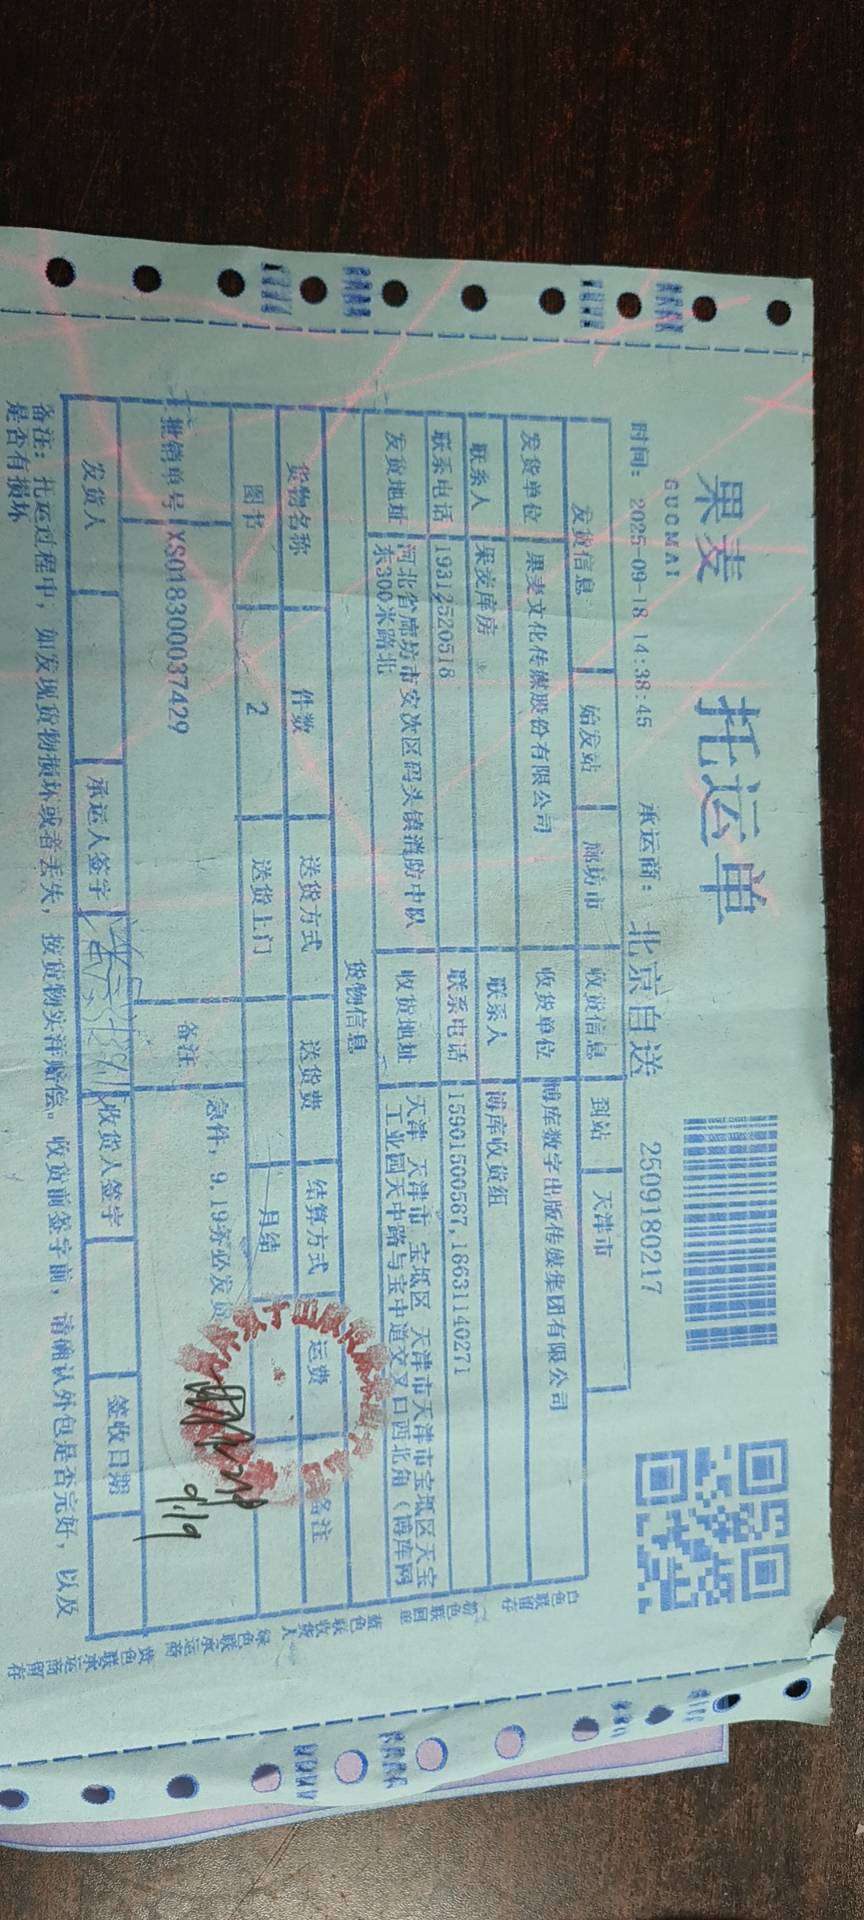 果麦 托运单
GUOMAI
时间: 2025-09-18 14:38:45 承运商: 北京自送 2509180217
发货信息 始发站 廊坊市 收货信息 到站 天津市
发货单位 果麦文化传媒股份有限公司 收货单位 博库数字出版传媒集团有限公司
联系人 果麦库房 联系人 博库收货组
联系电话 19312520518 联系电话 15901500587,18631140271
发货地址 河北省廊坊市安次区码头镇消防中队 收货地址 天津 天津市 宝坻区 天津市天津市宝坻区天宝
东300米路北 工业园天中路与宝中道交叉口西北角（博库网
货物信息
货物名称 件数 送货方式 送货费 结算方式 运费 备注
图书 2 送货上门 月结
批销单号 XS018300037429 备注 急件, 9.19务必发
发货人 承运人签字 收货人签字 签收日期
9.19
备注: 托运过程中, 如发现货物损坏或者丢失, 按货物实洋赔偿。收货前签字前, 请确认外包是否完好, 以及
是否有损坏
白色联留存
粉色联回单
蓝色联收货人
绿色联承运商
黄色联承运商留存